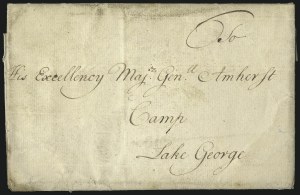 To
His Excellency Majr. Genll. Amherst
Camp
Lake George